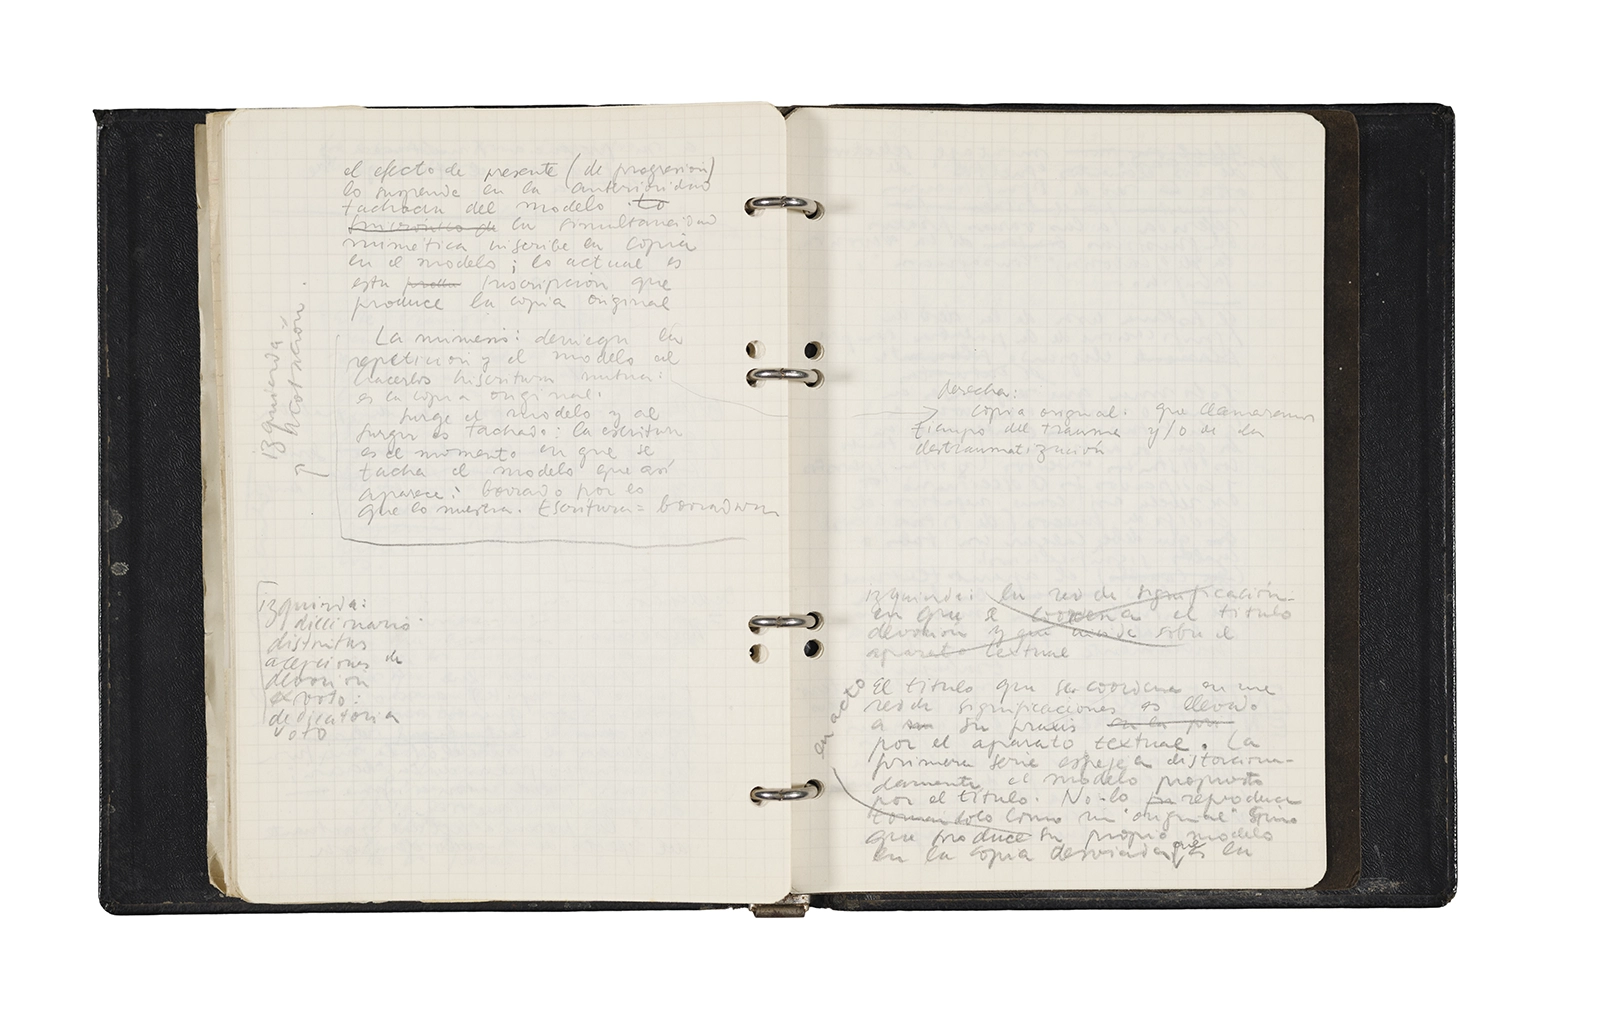 el efecto de presente (de progresión)
lo suspende en la anterioridad
tachada del modelo. Lo
en simultaneidad
mimética inscribe la copia
en el modelo; lo actual es
esta inscripción que
produce la copia original
La mimesis deniega la
repetición y el modelo al
hacerlos inscritura mutua:
es la copia original.
Surge el modelo y al
surgir es tachado: la escritura
es el momento en que se
tacha el modelo que así
aparece: borrado por lo
que lo muestra. Escritura = borradura
izquierda
acotación.
izquierda:
diccionario
distintas
acepciones de
devoción
exvoto:
dedicatoria
voto
derecha:
copia original: que llamaremos
tiempo del trauma y/o de la
destraumatización
izquierda: la red de significación
en que se el título
devoción y que incide sobre el
aparato textual
en acto
El título que se coordena en una
red de significaciones es llevado
a su praxis en la
por el aparato textual. La
primera serie espeja distorsiona-
damente el modelo propuesto
por el título. No lo reproduce
tomándolo como un "original" sino
que produce su propio modelo
en la copia desviada que es la